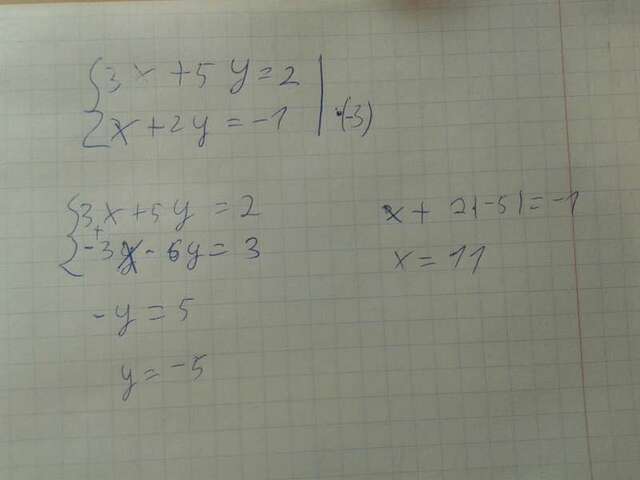 3x + 5y = 2
x + 2y = -1 | ·(-3)
3x + 5y = 2
+
-3x - 6y = 3
-y = 5
y = -5
x + 2(-5) = -1
x = 11